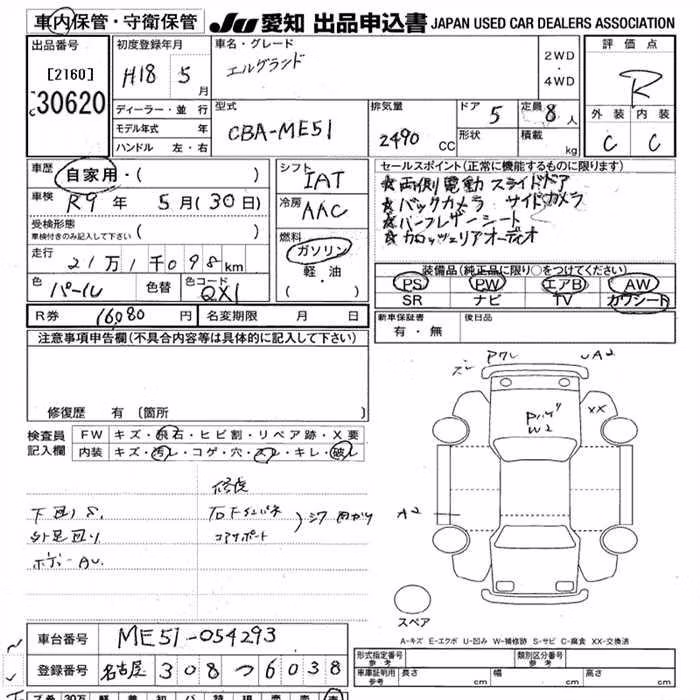 車内保管・守衛保管
JU 愛知 出品申込書 JAPAN USED CAR DEALERS ASSOCIATION
出品番号
[2160]
30620
初度登録年月
H18 5月
車名・グレード
エルグランド
2WD
・
4WD
評価点
R
外装 内装
C C
ディーラー・並行
モデル年式 年
ハンドル 左・右
型式
CBA-ME51
排気量
2490 CC
ドア 5
形状
定員 8人
積載 kg
車歴
自家用・( )
車検
R9 年 5月(30日)
受検形態
車検付きのみ記入して下さい ( )
走行
21万1千098km
色 パール
色替
色コード QX1
シフト
IAT
冷房
AAC
燃料
ガソリン
・
軽・油
・
( )
セールスポイント(正常に機能するものに限ります)
☆両側電動スライドドア
☆バックカメラ サイドカメラ
☆ハーフレザーシート
☆カロッツェリアオーディオ
装備品(純正品に限り○をつけてください)
PS PW エアB AW
SR ナビ TV カワシート
R券 16080 円 名変期限 月 日
新車保証書
有・無
後日品
注意事項申告欄(不具合内容等は具体的に記入して下さい)
修復歴 有 [箇所
検査員
記入欄
FW キズ・飛石・ヒビ割・リペア跡・X要
内装 キズ・汚レ・コゲ・穴・スレ・キレ・破レ
修復
下回りS.
外足回り
ボディーAU.
コアサポート
A2
XX
W2
A2
スペア
A-キズ E-エクボ U-凹み W-補修跡 S-サビ C-腐食 XX-交換済
車台番号 ME51-054293
登録番号 名古屋 308 つ 6038
形式指定番号
参考
類別区分番号
参考
車庫証明用
参考
長さ cm 幅 cm 高さ cm